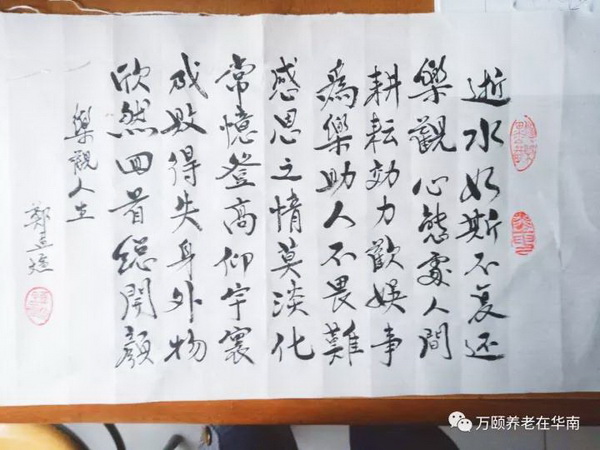 逝水如斯不复还
樂觀心態處人間
耕耘効力歡娛事
為樂助人不畏難
感恩之情莫淡化
常憶登高仰宇寰
成敗得失身外物
欣然回首總開顏
樂觀人生
鄭
万颐养老在华南